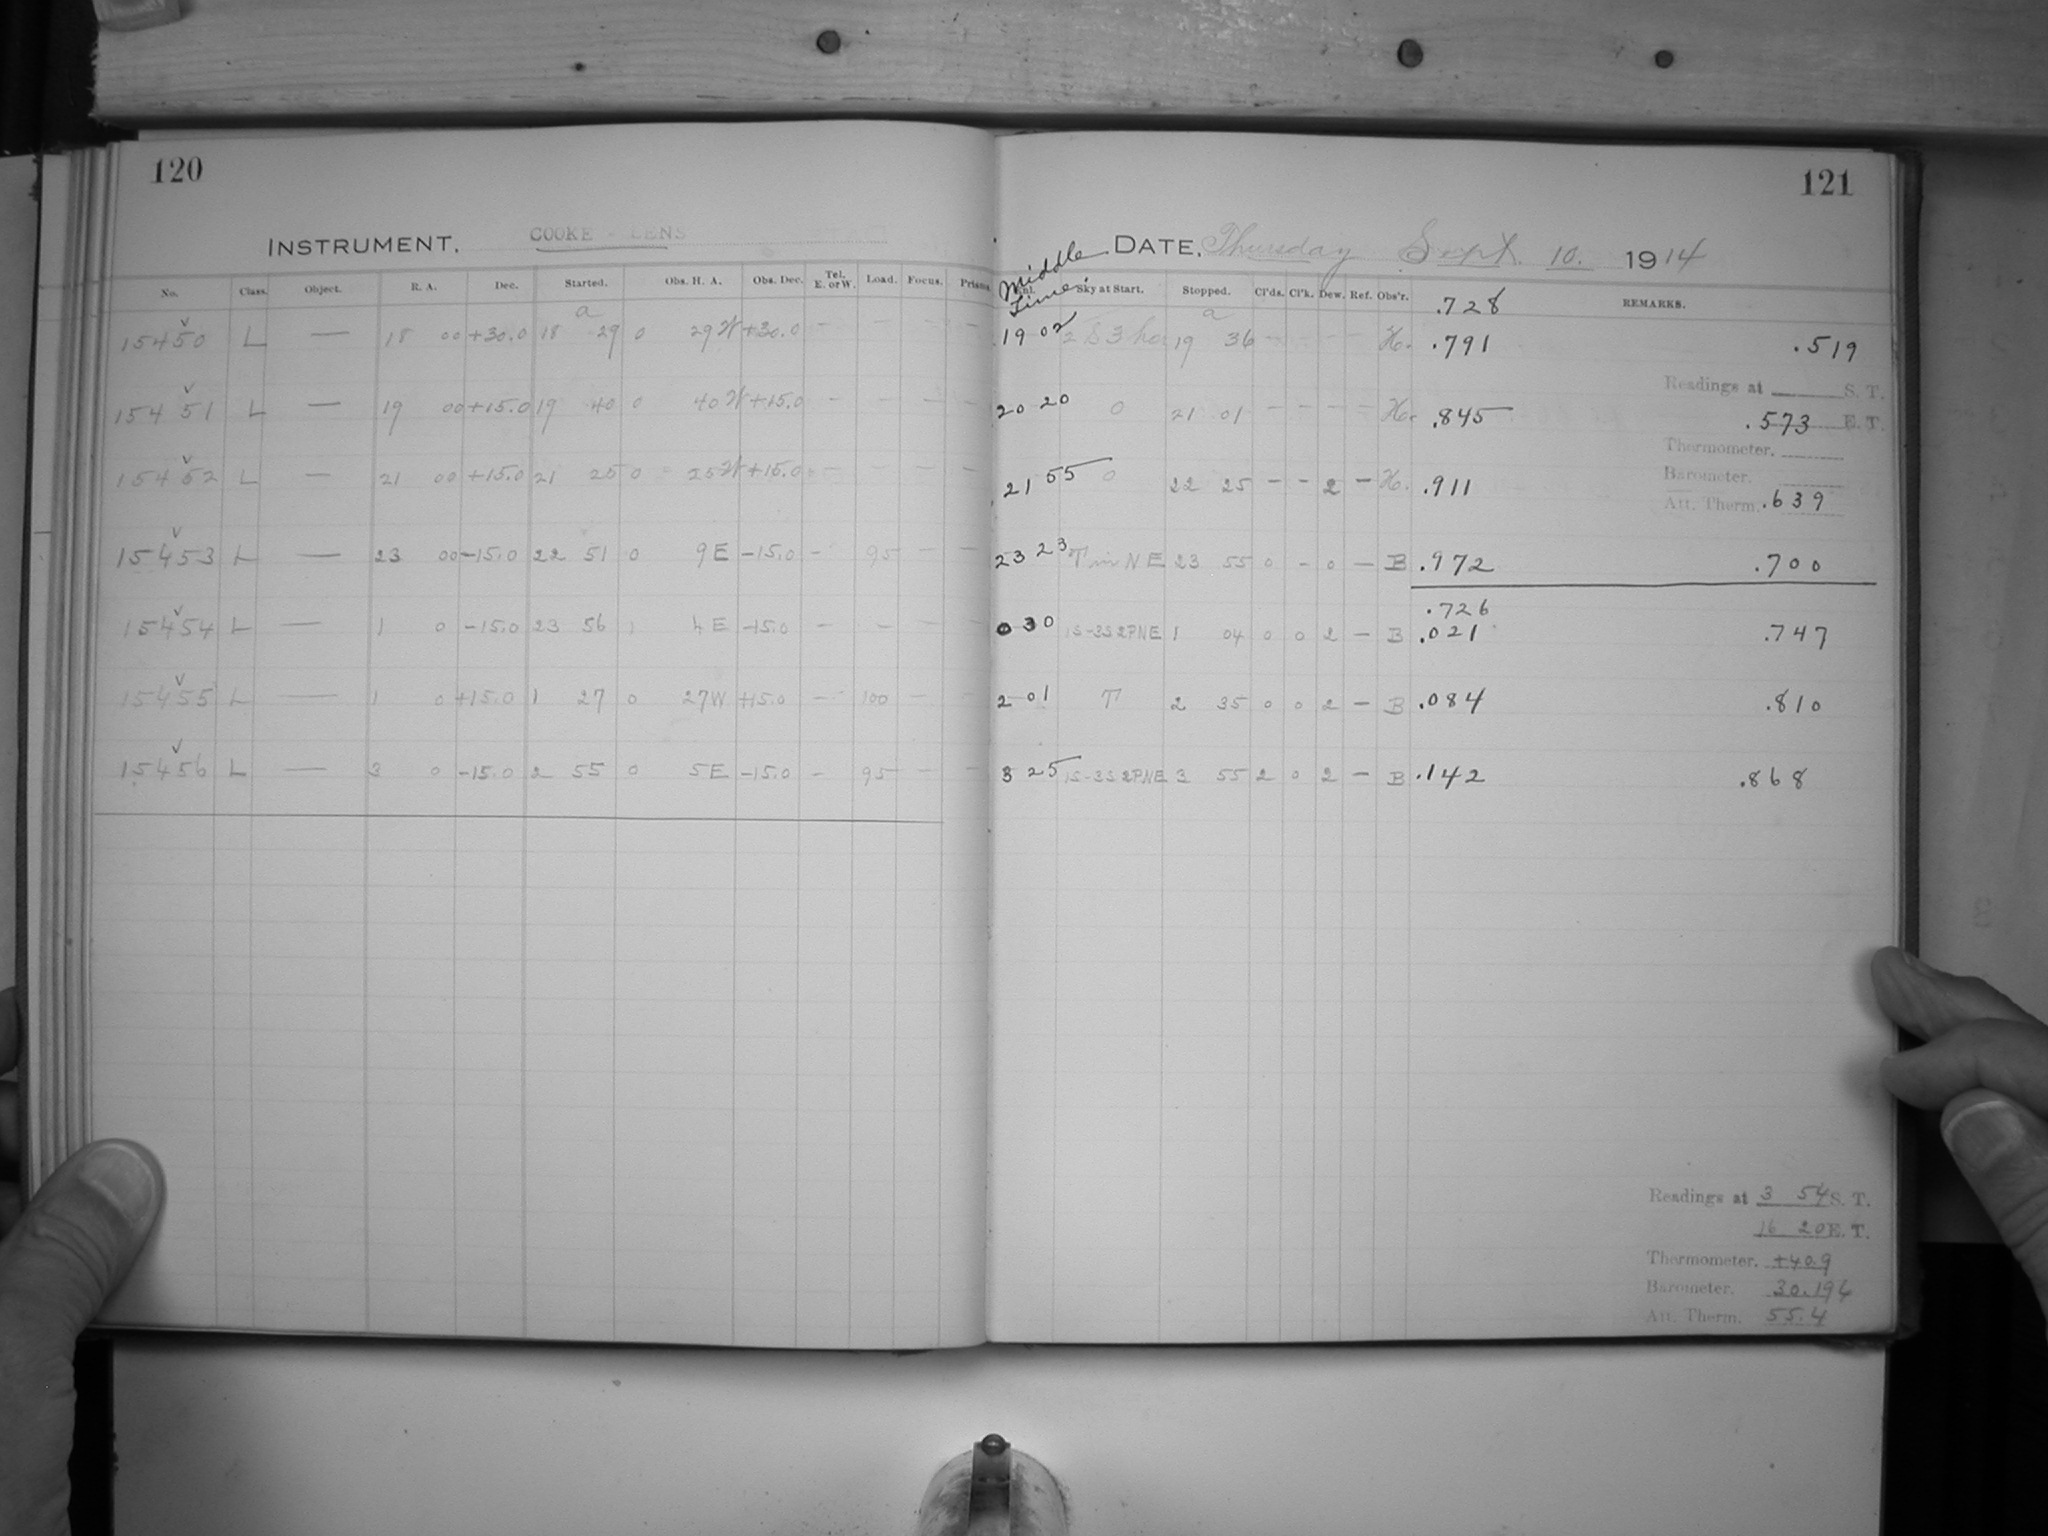 120
INSTRUMENT. COOKE - LENS
No. Class. Object. R. A. Dec. Started. Obs. H. A. Obs. Dec. Tel. E. or W. Load. Focus. Prisms.
a
15450 L — 18 00 +30.0 18 29 0 29 W +30.0 - - - -
15451 L — 19 00 +15.0 19 40 0 40 W +15.0 - - - -
15452 L — 21 00 +15.0 21 25 0 25 W +15.0 - - - -
15453 L — 23 00 -15.0 22 51 0 9 E -15.0 - 95 - -
15454 L — 1 0 -15.0 23 56 1 4 E -15.0 - - - -
15455 L — 1 0 +15.0 1 27 0 27 W +15.0 - 100 - -
15456 L — 3 0 -15.0 2 55 0 5 E -15.0 - 95 - -
121
DATE. Thursday Sept. 10. 1914
Middle Time
Sky at Start. Stopped. Cl'ds. Cl'k. Dew. Ref. Obs'r. REMARKS.
.728
a
19 02 19 36 - - - - H. .791 .519
Readings at S. T.
20 20 0 21 01 - - - - H. .845 .573 E. T.
Thermometer.
Barometer.
21 55 0 22 25 - - 2 - H. .911
Att. Therm. .639
23 23 T in NE 23 55 0 - 0 - B .972 .700
.726
0 30 1S-3S2PNE 1 04 0 0 2 - B .021 .747
2 01 T 2 35 0 0 2 - B .084 .810
3 25 1S-3S2PNE 3 55 2 0 2 - B .142 .868
Readings at 3 54 S. T.
16 20 E. T.
Thermometer. +40.9
Barometer. 30.194
Att. Therm. 55.4